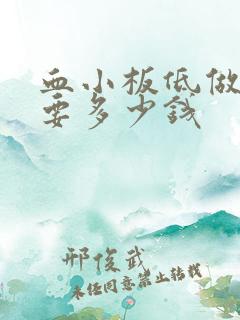 血小板低做
要多少钱
邢俊武
未经同意禁止转载